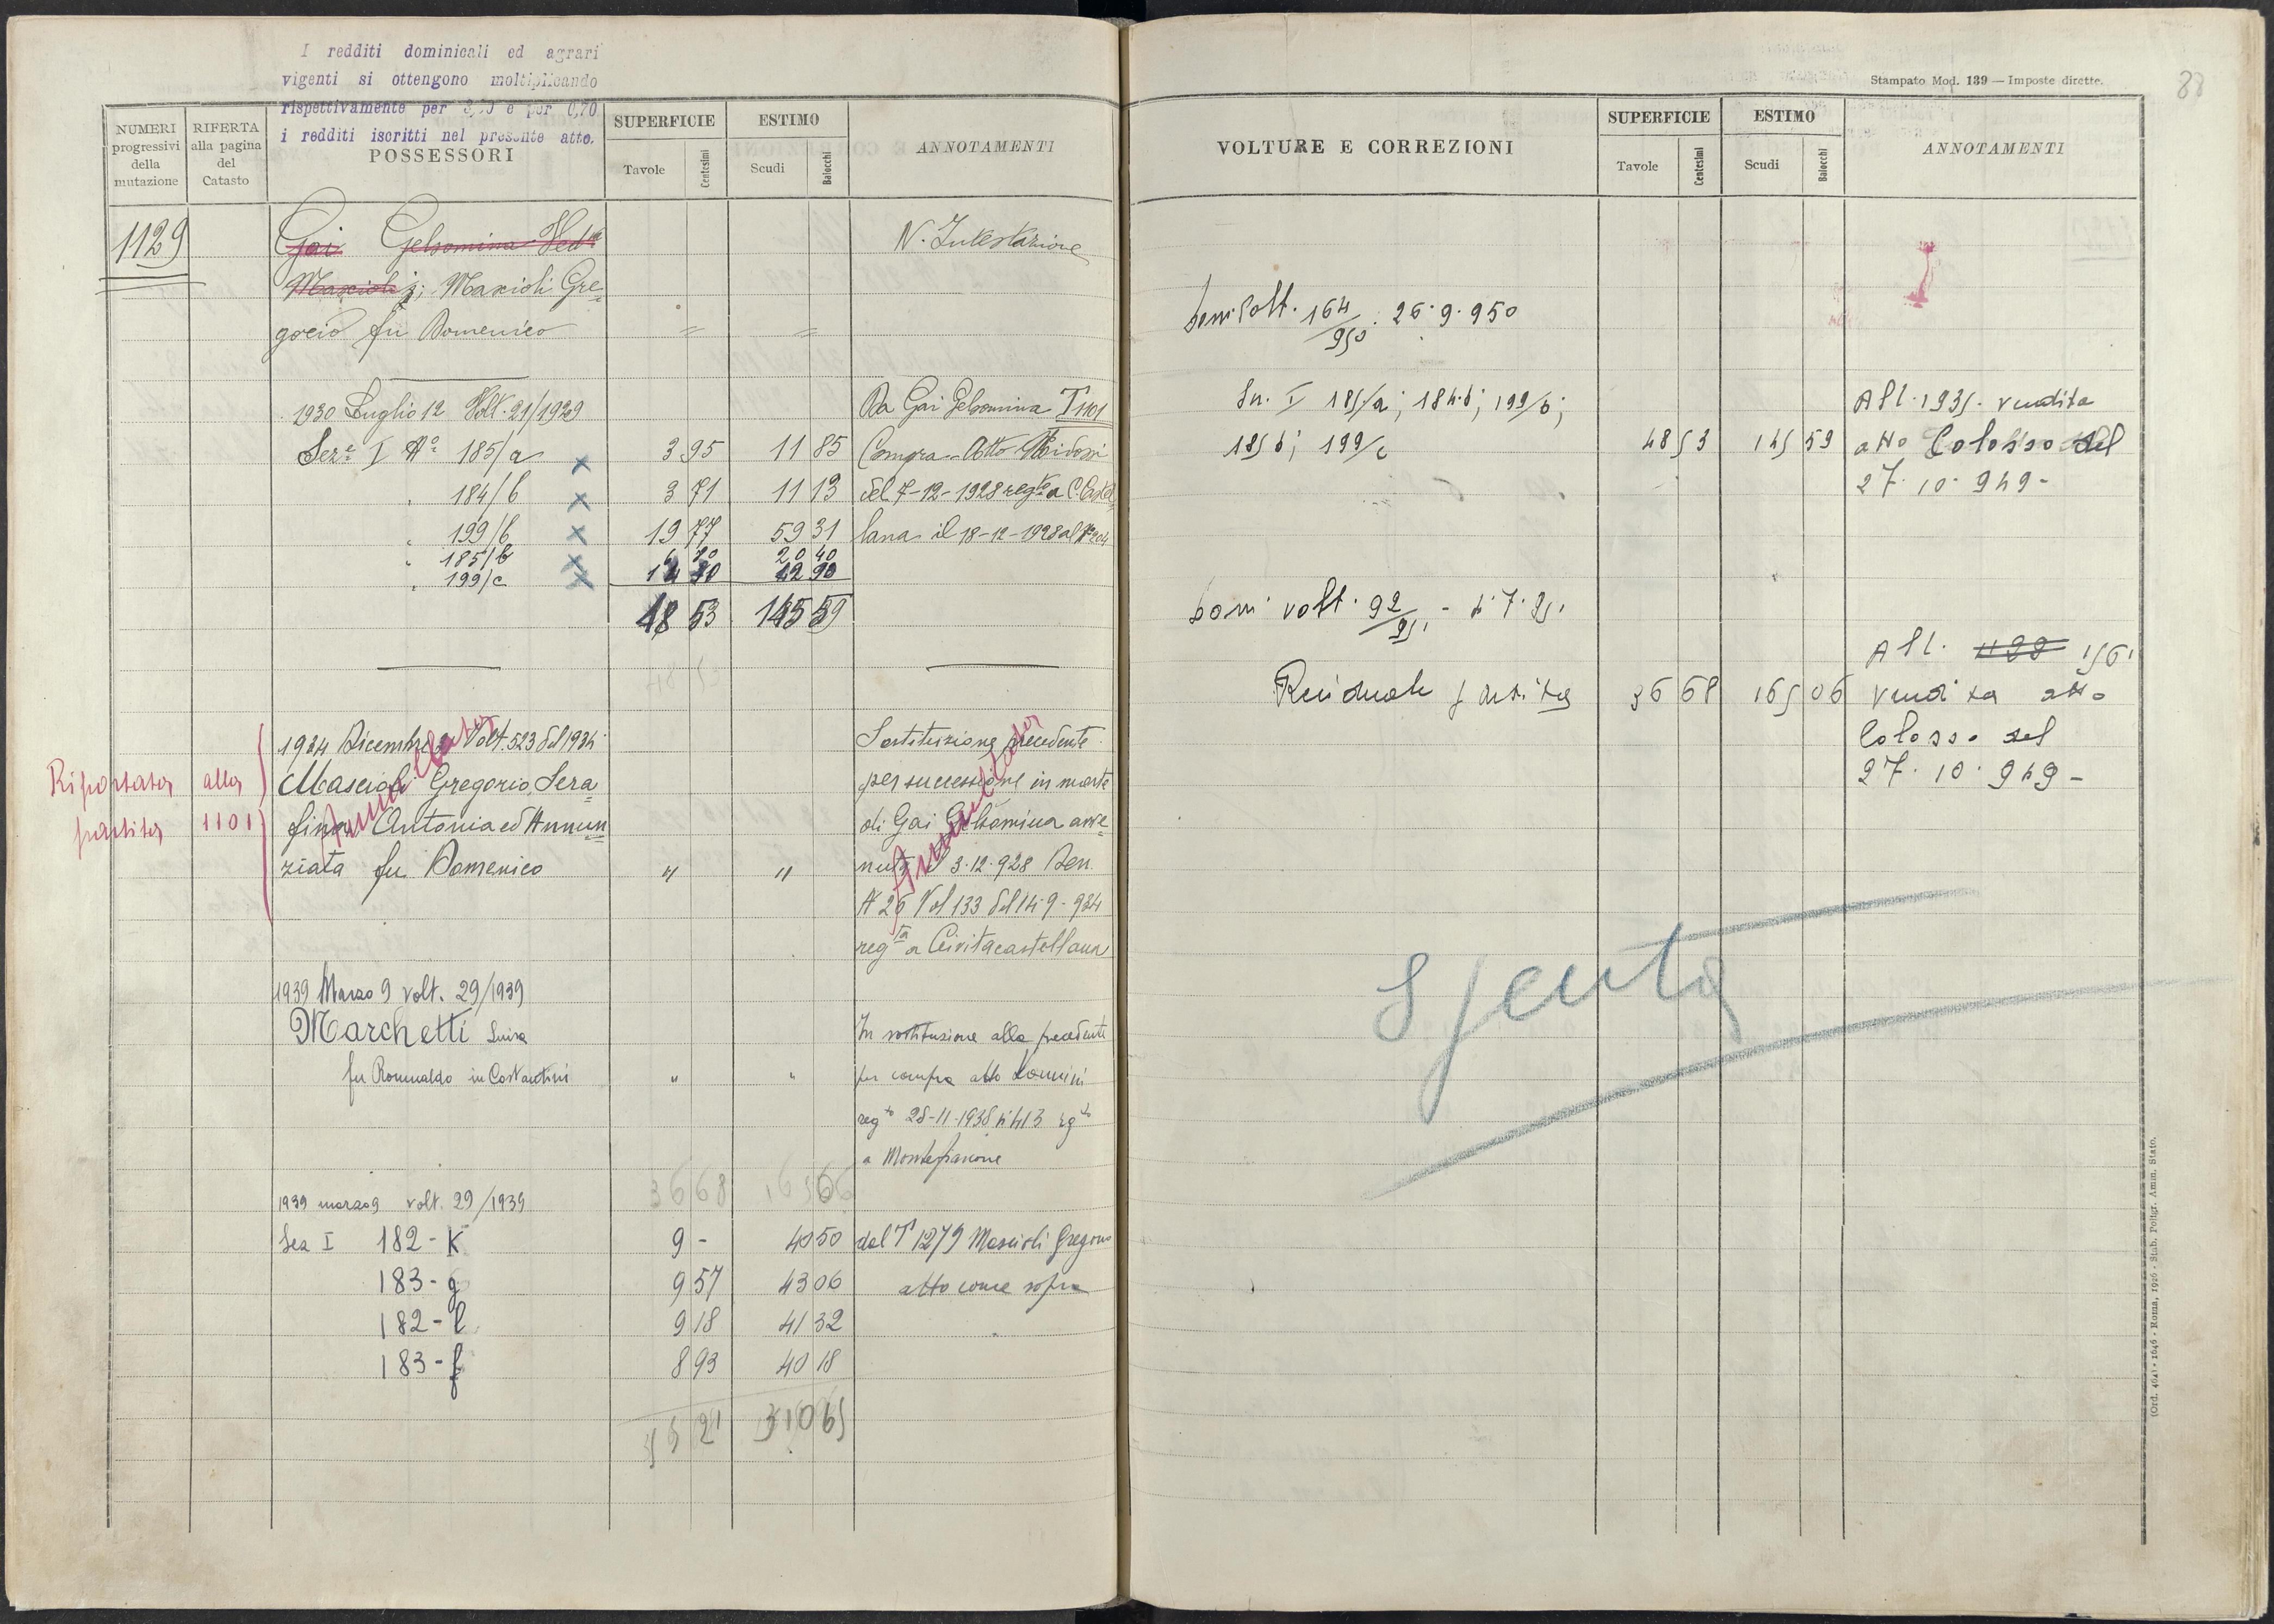 I redditi dominicali ed agrari
vigenti si ottengono moltiplicando
rispettivamente per 3,20 e per 0,70
i redditi iscritti nel presente atto.
NUMERI progressivi della mutazione
RIFERTA alla pagina del Catasto
POSSESSORI
SUPERFICIE
Tavole Centesimi
ESTIMO
Scudi Baiocchi
ANNOTAMENTI
1129 Gai Gelsomina Ved.a N. Intestazione
Mascioli; Mascioli Gre=
gorio fu Domenico = =
1930 Luglio 12 Volt. 21/1929 Da Gai Gelsomina T 1101
Sez.e I N.o 185/a 3 95 11 85 Compra Atto
184/b 3 71 11 13 del 7-12-1928 reg.to a C. Castel=
199/b 19 77 59 31 lana il 18-12-1928 al N.
185/b 6 80 20 40
199/c 14 30 42 90
48 53 145 59
1934 Dicembre Volt. 523 del 1934 Sostituzione precedente
Riportata alla Mascioli Gregorio, Sera= per successione in morte
partita 1101 fina Antonia ed Annun= di Gai Gelsomina avve=
ziata fu Domenico " " nuta il 3.12.928 Den.
Annullato Annullato
N 26 Vol 133 del 14-9-934
reg.ta a Civitacastellana
1939 Marzo 9 volt. 29/1939
Marchetti Luisa In sostituzione alla precedente
fu Romualdo in Costantini " " per compra atto
reg.to 28-11-1938 n° 413 reg.to
a Montefiascone
36 68 165 06
1939 marzo 9 volt. 29/1939
Sez I 182-K 9 - 40 50 dal T 1279 Mascioli Gregorio
183-g 9 57 43 06 atto come sopra
182-l 9 18 41 32
183-f 8 93 40 18
85 21 310 65
Stampato Mod. 139 — Imposte dirette.
88
VOLTURE E CORREZIONI
SUPERFICIE
Tavole Centesimi
ESTIMO
Scudi Baiocchi
ANNOTAMENTI
volt. 164/950. 26.9.950
Sez. I 185/a; 184.b; 199/b; All. 1935. vendita
185 b; 199/c 48 53 145 59 atto Colosso del
27.10.949-
volt. 92/951 - 4.7.951
All. 1122 1561
Residuale partita 36 68 165 06 vendita atto
Colosso del
27.10.949-
Spenta
(Ord. 4641 - 1646 - Roma, 1926 - Stab. Poligr. Amm. Stato.